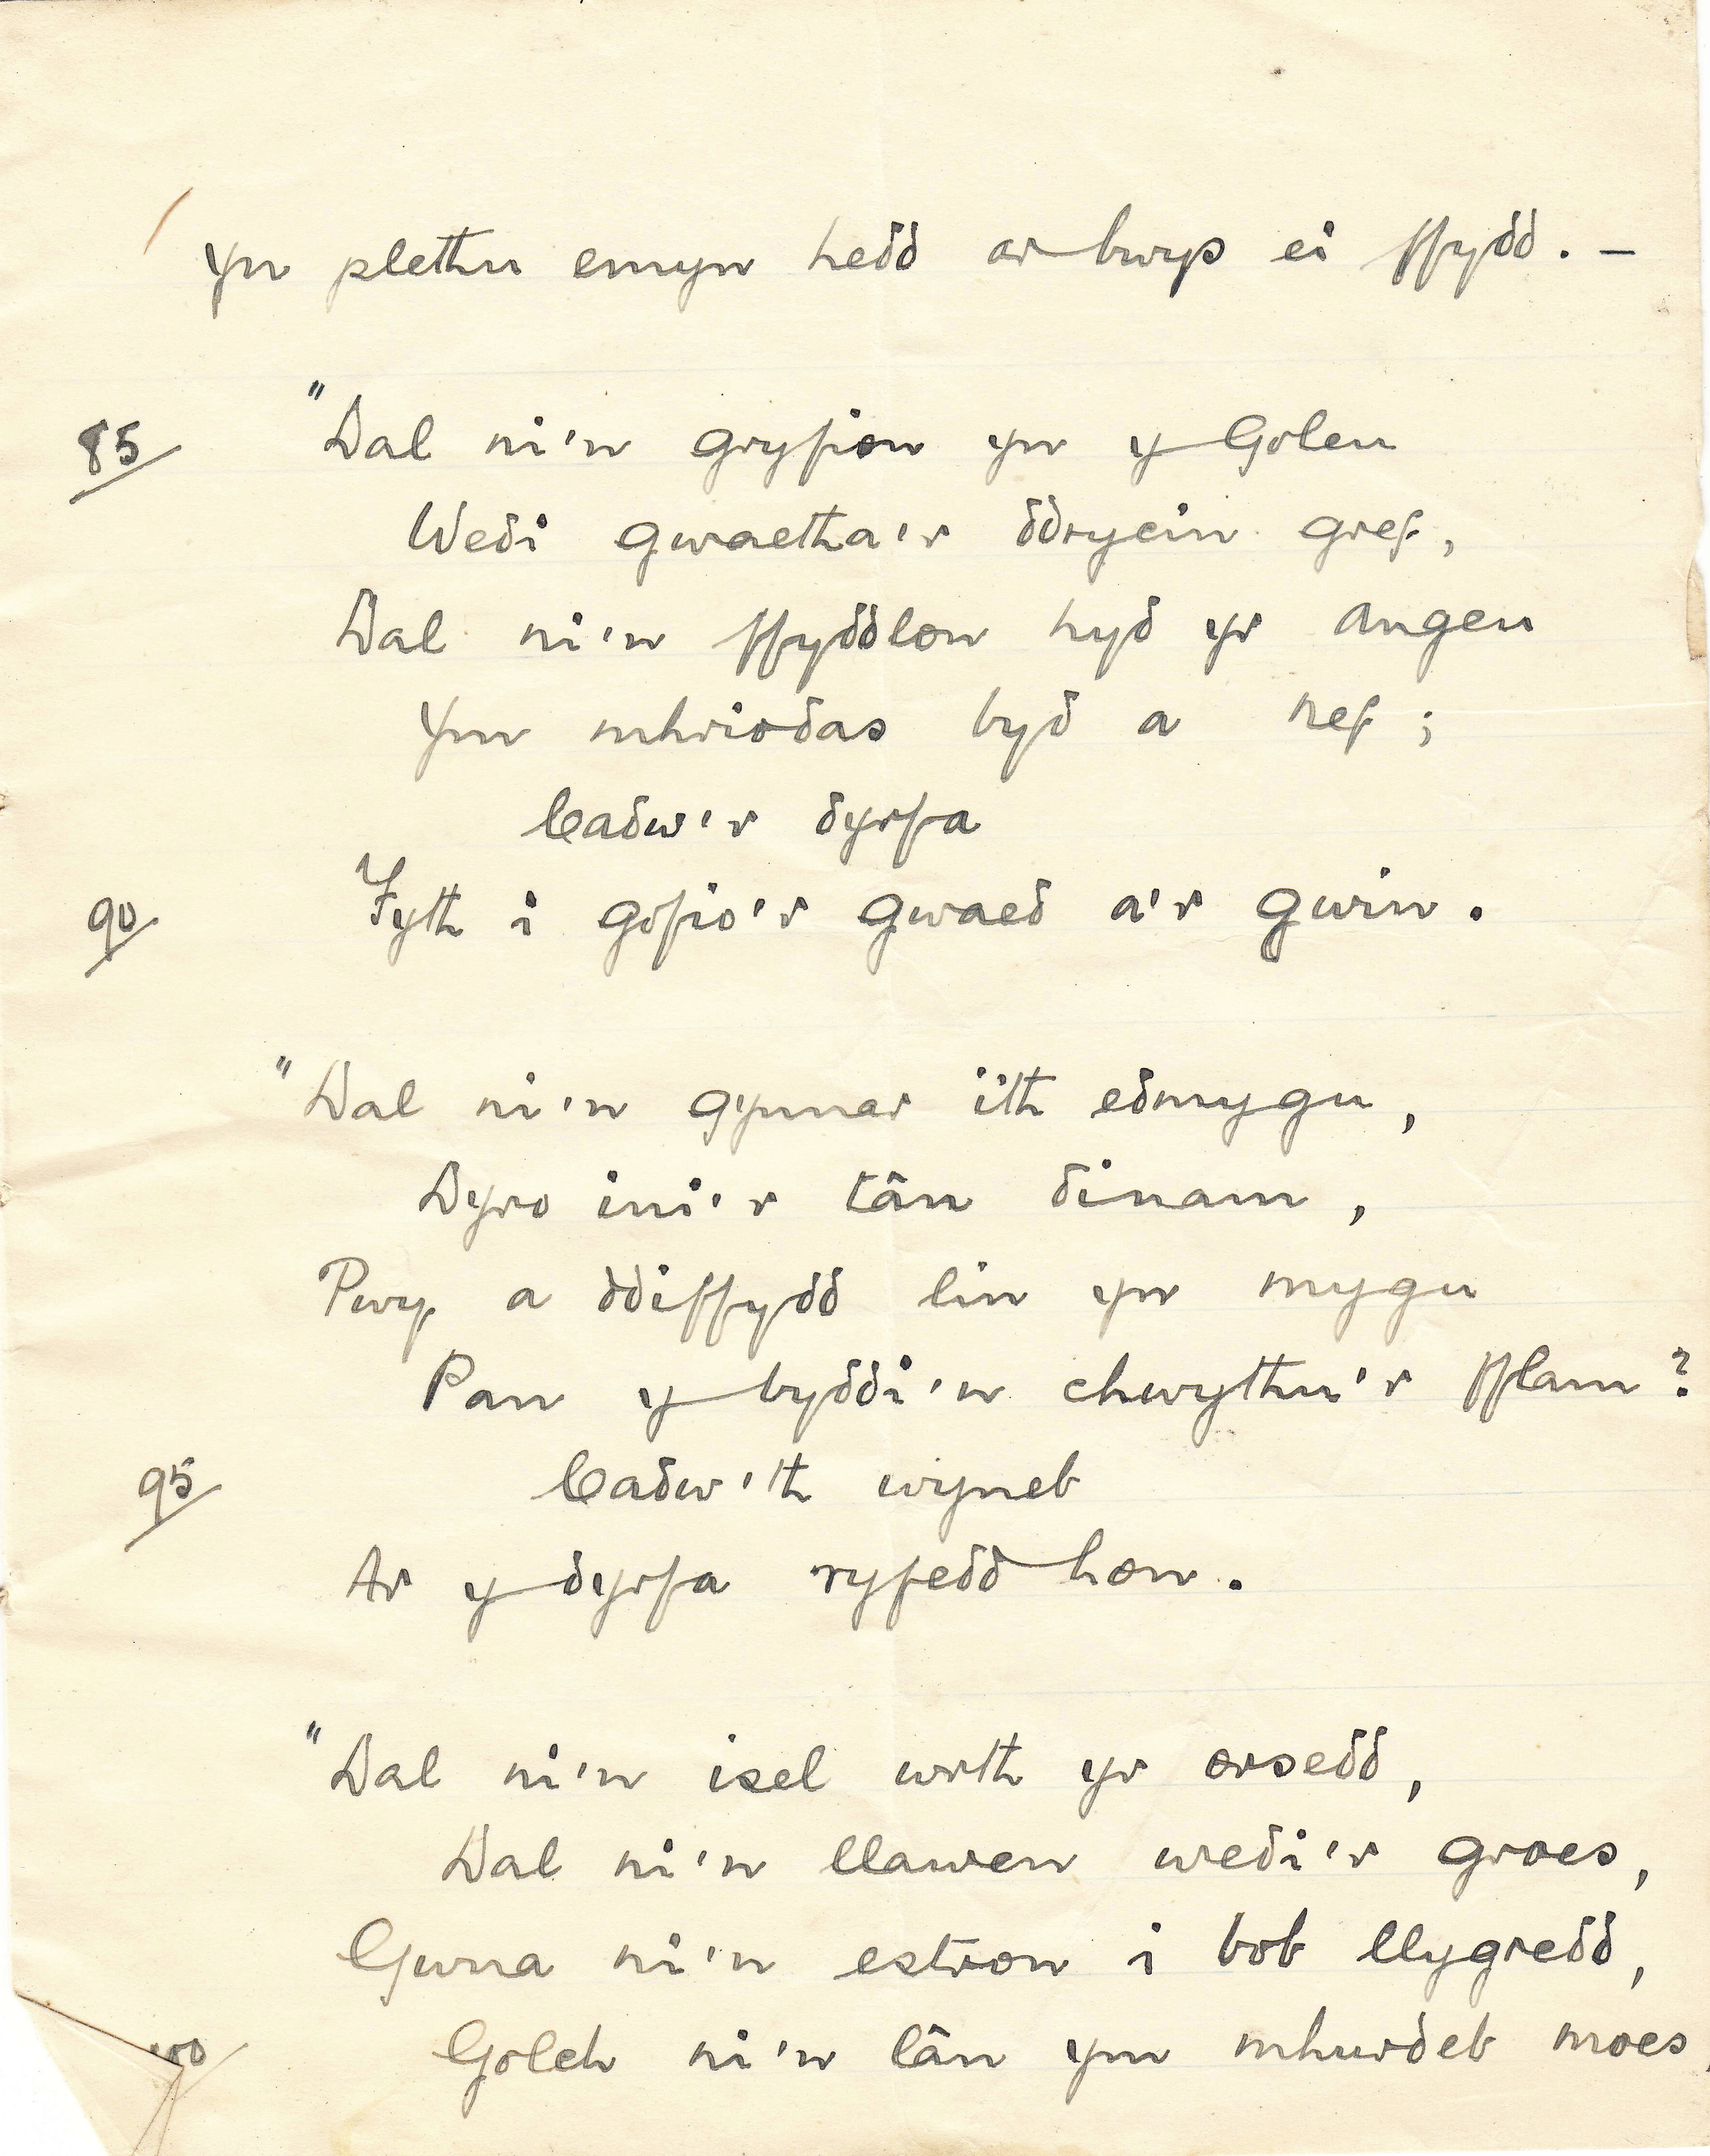 Yn plethu emyn hedd ar bwys ei ffydd. –
"Dal ni'n gryfion yn y Goleu
85
Wedi gwaetha'r ddrycin gref,
Dal ni'n ffyddlon hyd yr angeu
Ym mhriodas byd a nef;
Cadw'r dyrfa
90
Fyth i gofio'r gwaed a'r gwin.
"Dal ni'n gynnar i'th edmygu,
Dyro ini'r tân dinam,
Pwy a ddiffydd lin yn mygu
Pan y byddi'n chwythu'r fflam?
95
Cadw'th wyneb
Ar y dyrfa ryfedd hon.
"Dal ni'n isel wrth yr orsedd,
Dal ni'n llawen wedi'r groes,
Gwna ni'n estron i bob llygredd,
100
Golch ni'n lân ym mhurdeb moes,